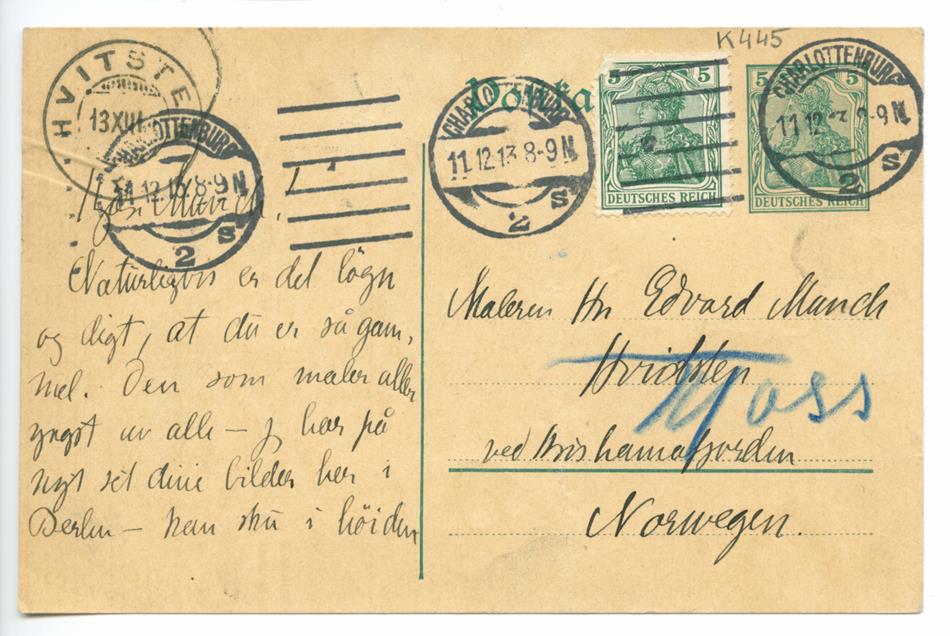 K445
Postka
5 5
DEUTSCHES REICH
5 5
DEUTSCHES REICH
CHARLOTTENBURG
11.12.13.8-9N
2 S
CHARLOTTENBURG
11.12.13 8-9N
2 S
HVITSTE
13 XII
CHARLOTTENBURG
11.12.13.8-9N
2 S
Kjære Munch!
Naturligvis er det løgn
og digt, at du er så gam,
mel. Den som maler aller
yngst av alle – Jeg har på
nyt set dine bilder her i
Berlin – kan sku i höiden
Maleren Hr Edvard Munch
Hvidsten
Moss
ved Kristianiafjorden
Norwegen.